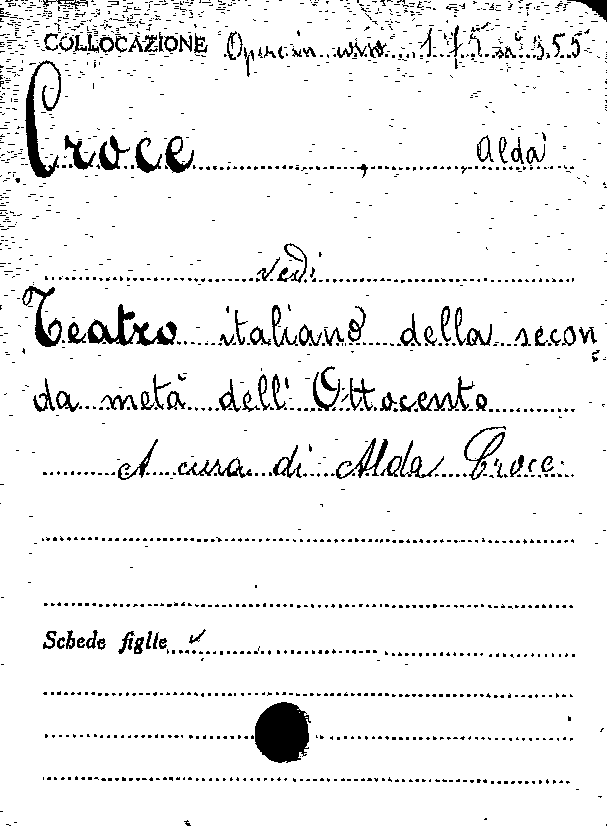 COLLOCAZIONE Opere in 175 n° 355
Croce, Alda
vedi
Teatro italiano della secon
da metà dell' Ottocento
A cura di Alda Croce.
Schede figlie ✓